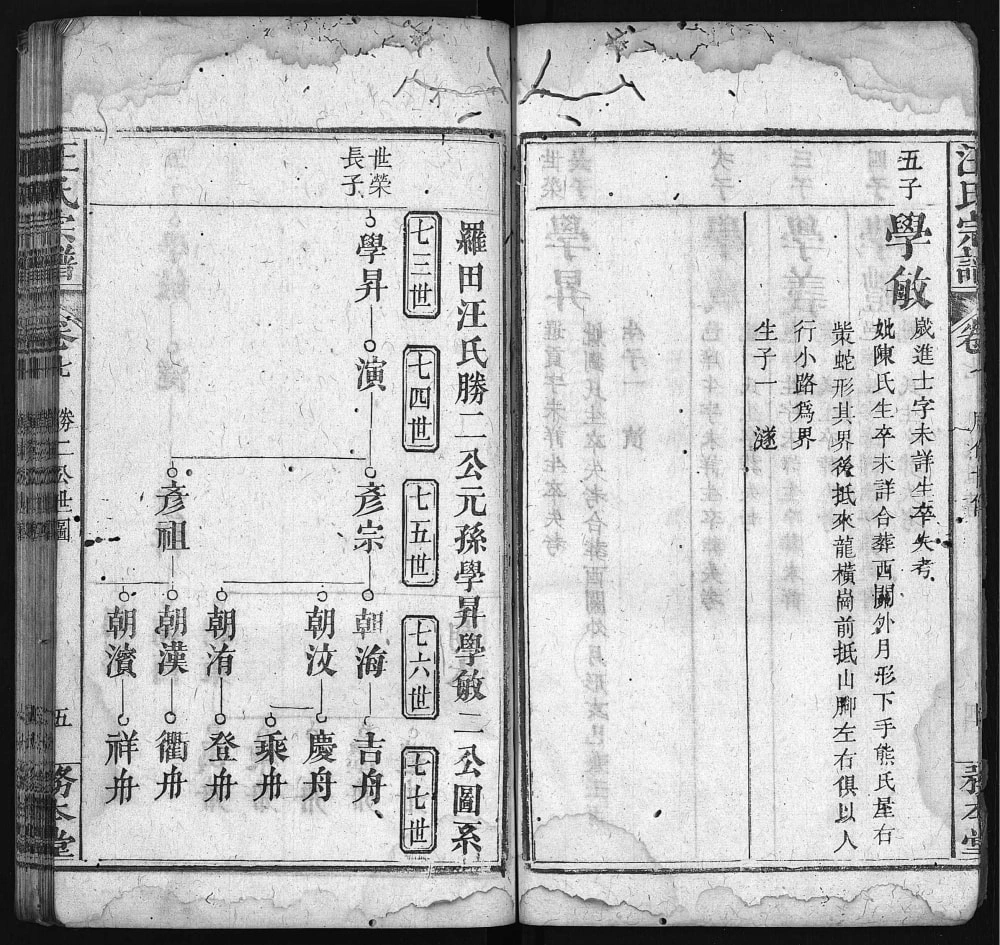 汪氏宗譜
五子
學敏
歲進士字未詳生卒失考
妣陳氏生卒未詳合葬西關外月形下手熊氏屋右
柴蛇形其界後抵來龍橫崗前抵山脚左右俱以人
行小路爲界
生子一 遂
務本堂
羅田汪氏勝二公元孫學昇學敏二公圖系
七三世 七四世 七五世 七六世 七七世
世榮
長子
學昇 演 彥宗 朝海 吉舟
朝汶 慶舟
乘舟
朝洧 登舟
彥祖 朝漢 衢舟
朝濱 祥舟
汪氏宗譜
卷七
勝二公世圖
五
務本堂